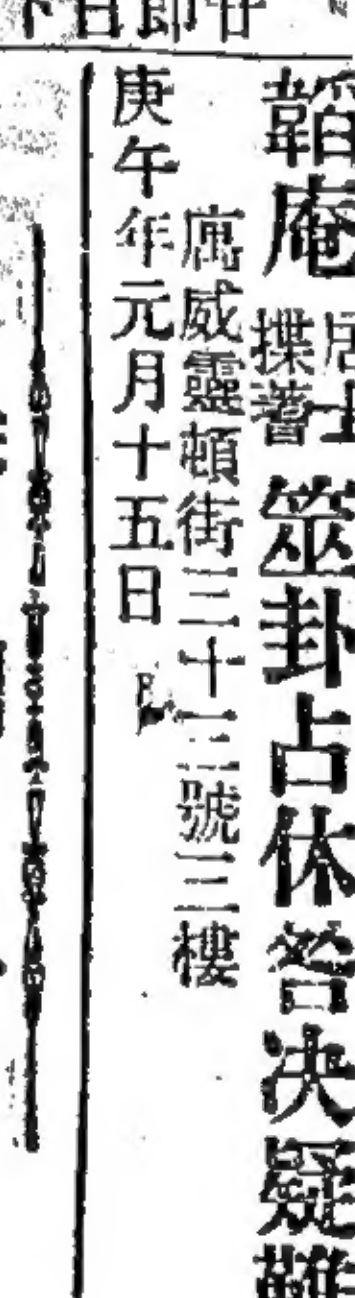 韜庵居士揲蓍筮卦占休咎决疑難
寓威靈頓街三十三號三樓
庚午年元月十五日